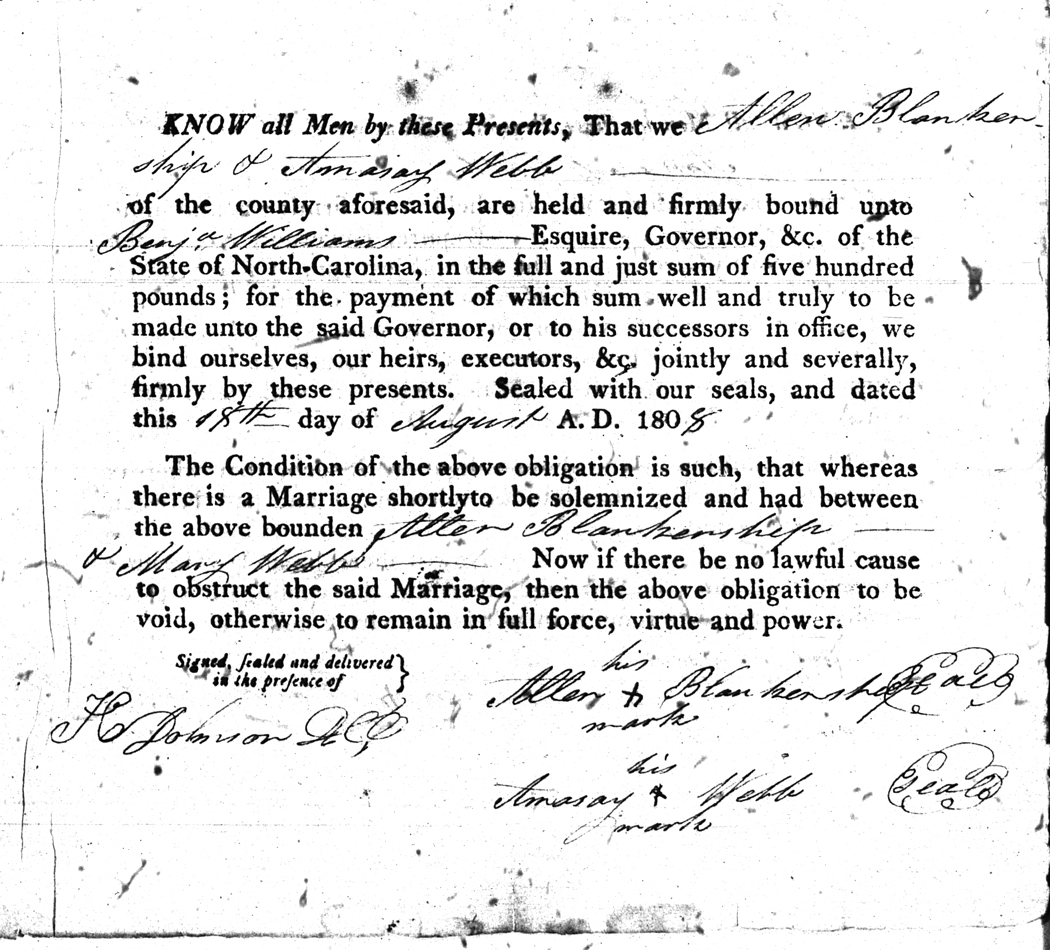 KNOW all Men by these Presents, That we Allen Blanken-
ship & Amasay Webb
of the county aforesaid, are held and firmly bound unto
Benja Williams Esquire, Governor, &c. of the
State of North-Carolina, in the full and just sum of five hundred
pounds; for the payment of which sum well and truly to be
made unto the said Governor, or to his successors in office, we
bind ourselves, our heirs, executors, &c. jointly and severally,
firmly by these presents. Sealed with our seals, and dated
this 18th day of August A. D. 1808
The Condition of the above obligation is such, that whereas
there is a Marriage shortlyto be solemnized and had between
the above bounden Allen Blankenship
& Mary Webb Now if there be no lawful cause
to obstruct the said Marriage, then the above obligation to be
void, otherwise to remain in full force, virtue and power.
Signed, ſealed and delivered
in the preſence of
his
Allen + Blankenship Seal
mark
Johnson
his
Amasay + Webb Seal
mark